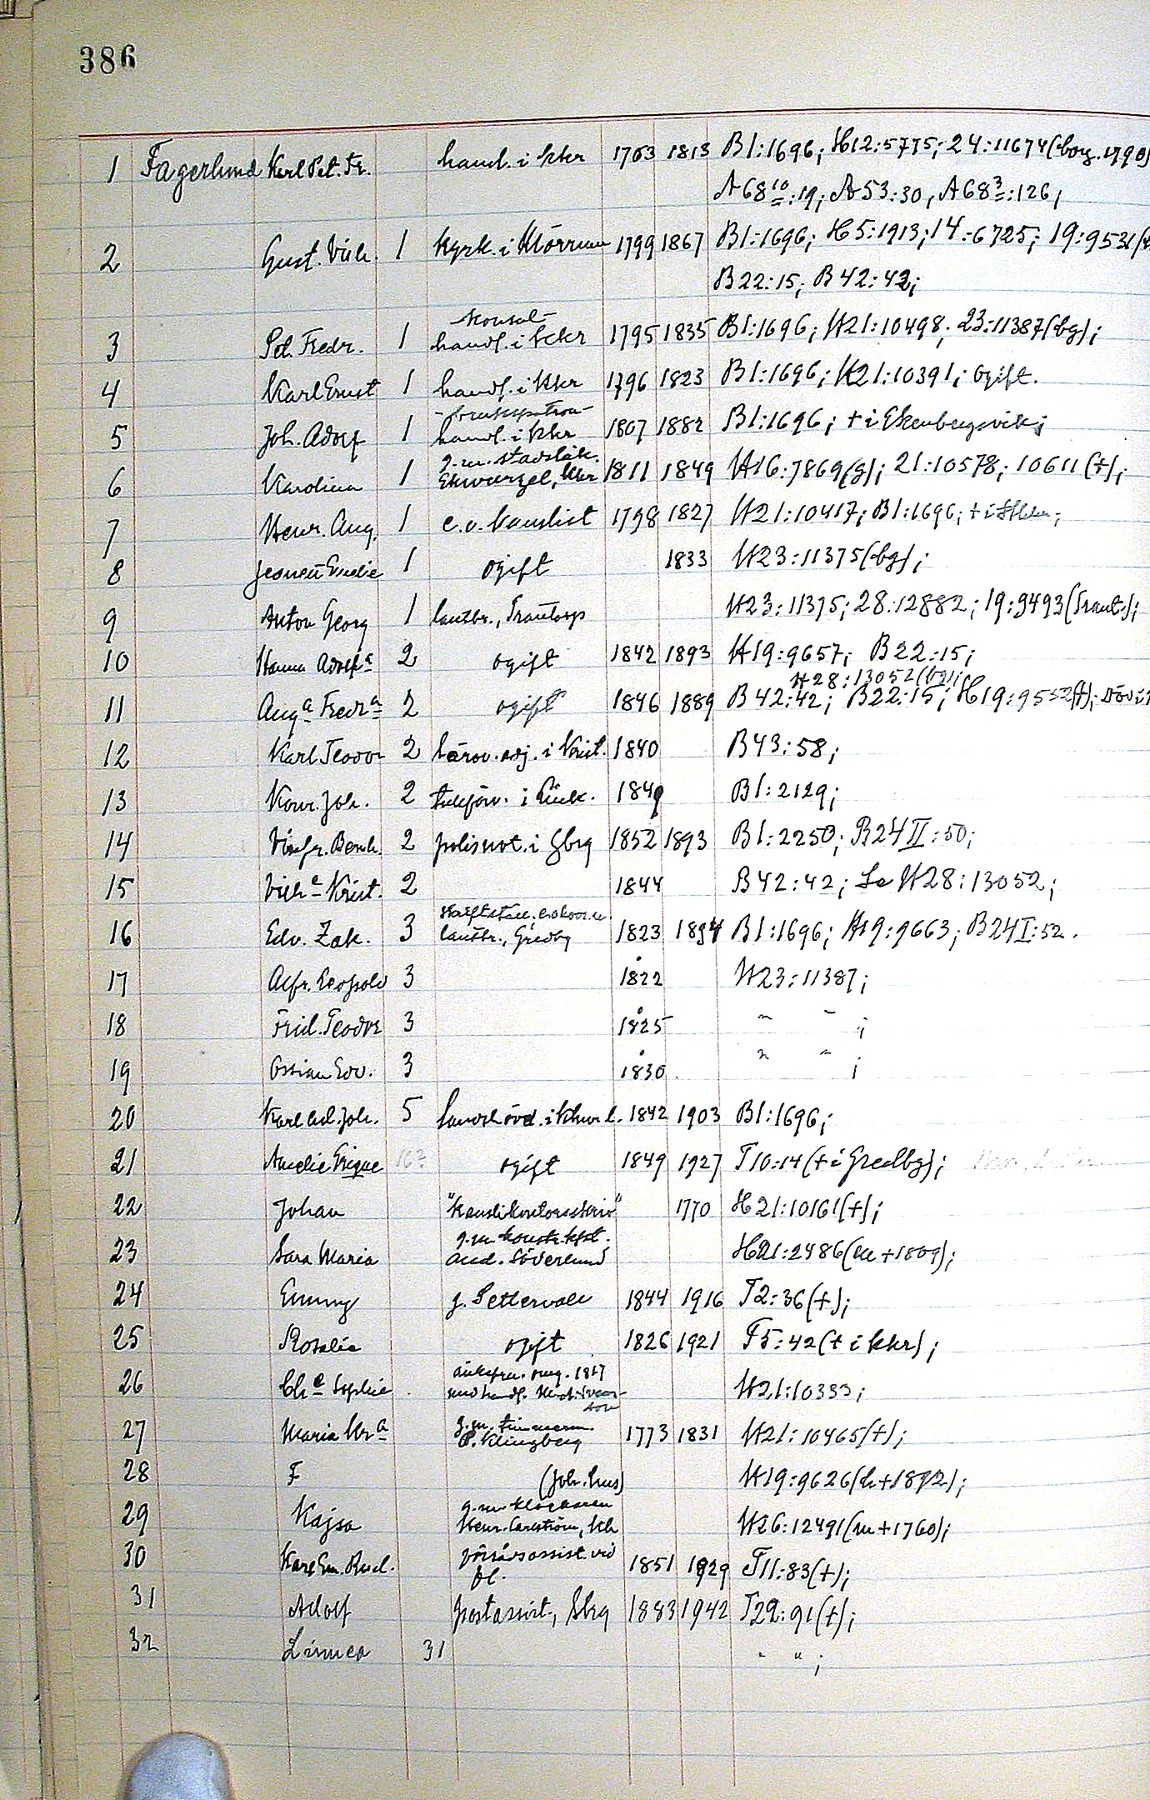 386
1 Fagerlund Karl Pet. Fr. handl. i kkr 1763 1813 B1:1696; H12:5775; 24:11674 (borg. 1790)
A68 10:19; A53:30, A68 3:126;
2 Gust. Vilh. 1 kyrk. i Mörrum 1799 1867 B1:1696; H5:1913; 14:6725; 19:9531
B22:15; B42:42;
konsul
3 Pet. Fredr. 1 handl. i kkr 1795 1835 B1:1696; H21:10498; 23:11387(bg);
4 Karl Ernst 1 handl. i kkr 1796 1823 B1:1696; H21:10391; ogift.
5 Joh. Adolf 1 handl. i kkr 1807 1882 B1:1696; + i Ekenbergsvik;
g. m. stadsläk.
6 Karolina 1 Ekwurzel, kkr 1811 1849 H16:7869(g); 21:10578; 10611(+);
7 Henr. Aug. 1 e.o. kanslist 1798 1827 H21:10417; B1:1696; + i
8 Jeanett Emelie 1 ogift 1833 H23:11375(bg);
9 Anton Georg 1 lantbr., Frantorp H23:11375; 28:12882; 19:9493
10 Hanna Adolfa 2 ogift 1842 1893 H19:9657; B22:15;
H28:13052(bg);
11 Auga Fredra 2 ogift 1846 1889 B42:42; B22:15; H19:9532(+);
12 Karl Teodor 2 lärov. adj. i Krist. 1840 B43:58;
13 Konr. Joh. 2 i 1849 B1:2129;
14 Vinfr. Bernh. 2 polisnot. i Gbrg 1852 1893 B1:2250; B24 II:50;
15 Vilha Krist. 2 1844 B42:42; Se H28:13052;
16 Edv. Zak. 3 lantbr., Gredby 1823 1894 B1:1696; H19:9663; B24 I:52.
17 Alfr. Leopold 3 1822 H23:11387;
18 Frid. Teodor 3 1825 " " ;
19 Ossian Edv. 3 1830 " " ;
20 Karl Ad. Joh. 5 1842 1903 B1:1696;
21 Amelie Erique 16? ogift 1849 1927 T10:14 (+ i Gredby);
22 Johan "Kanslikontorsskriv" 1770 H21:10161(+);
g. m. konst. kpt.
23 Sara Maria And. Söderlund H21:2486(m+1809);
24 Emmy g. Settervall 1844 1916 T2:36(+);
25 Rosalie ogift 1826 1921 T5:42(+ i kkr);
änkefru, aug. 1817
26 Che Sophie H21:10333;
g. m. timmerm.
27 Maria Kra P. Klingberg 1773 1831 H21:10465(+);
28 F (Joh:s hus) H19:9626(h+1892);
g. m. klockaren
29 Kajsa Henr. Carström, kh H26:12491(m+1760);
30 Karl Em. Rud. förrådsassist. vid fl. 1851 1929 T11:83(+);
31 Adolf postassist, Gbg 1883 1942 T22:91(+);
32 Linnea 31 " " ;